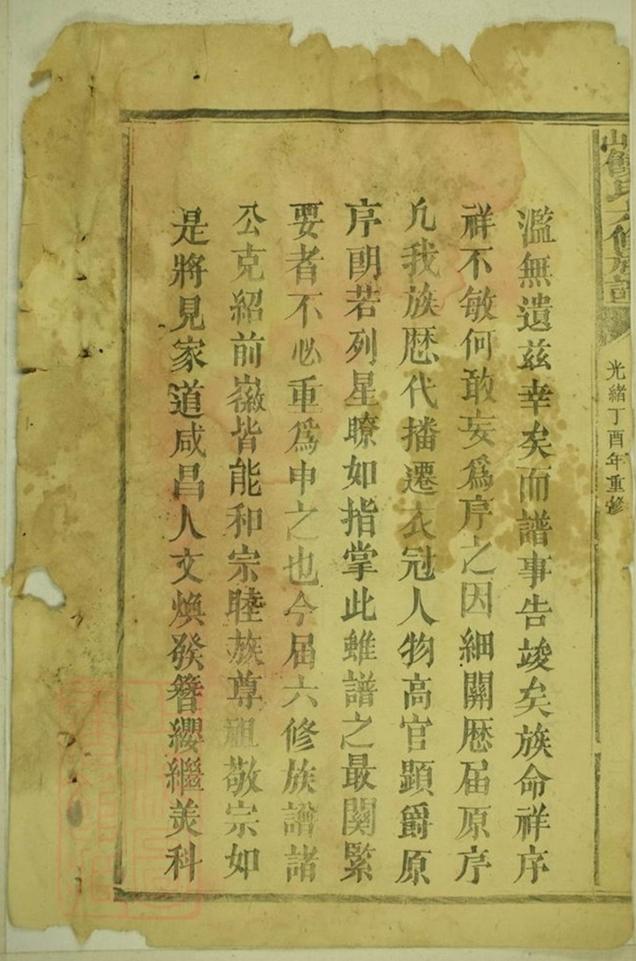 氏六修族譜
光緒丁酉年重修
濫無遺茲幸矣而譜事告竣矣族命祥序
祥不敏何敢妄爲序之因細閱歷屆原序
凢我族歷代播遷衣冠人物高官顯爵原
序朗若列星瞭如指掌此雖譜之最関緊
要者不必重爲申之也今屆六修族譜諸
公克紹前徽皆能和宗睦族尊祖敬宗如
是將見家道咸昌人文煥發簪纓繼美科